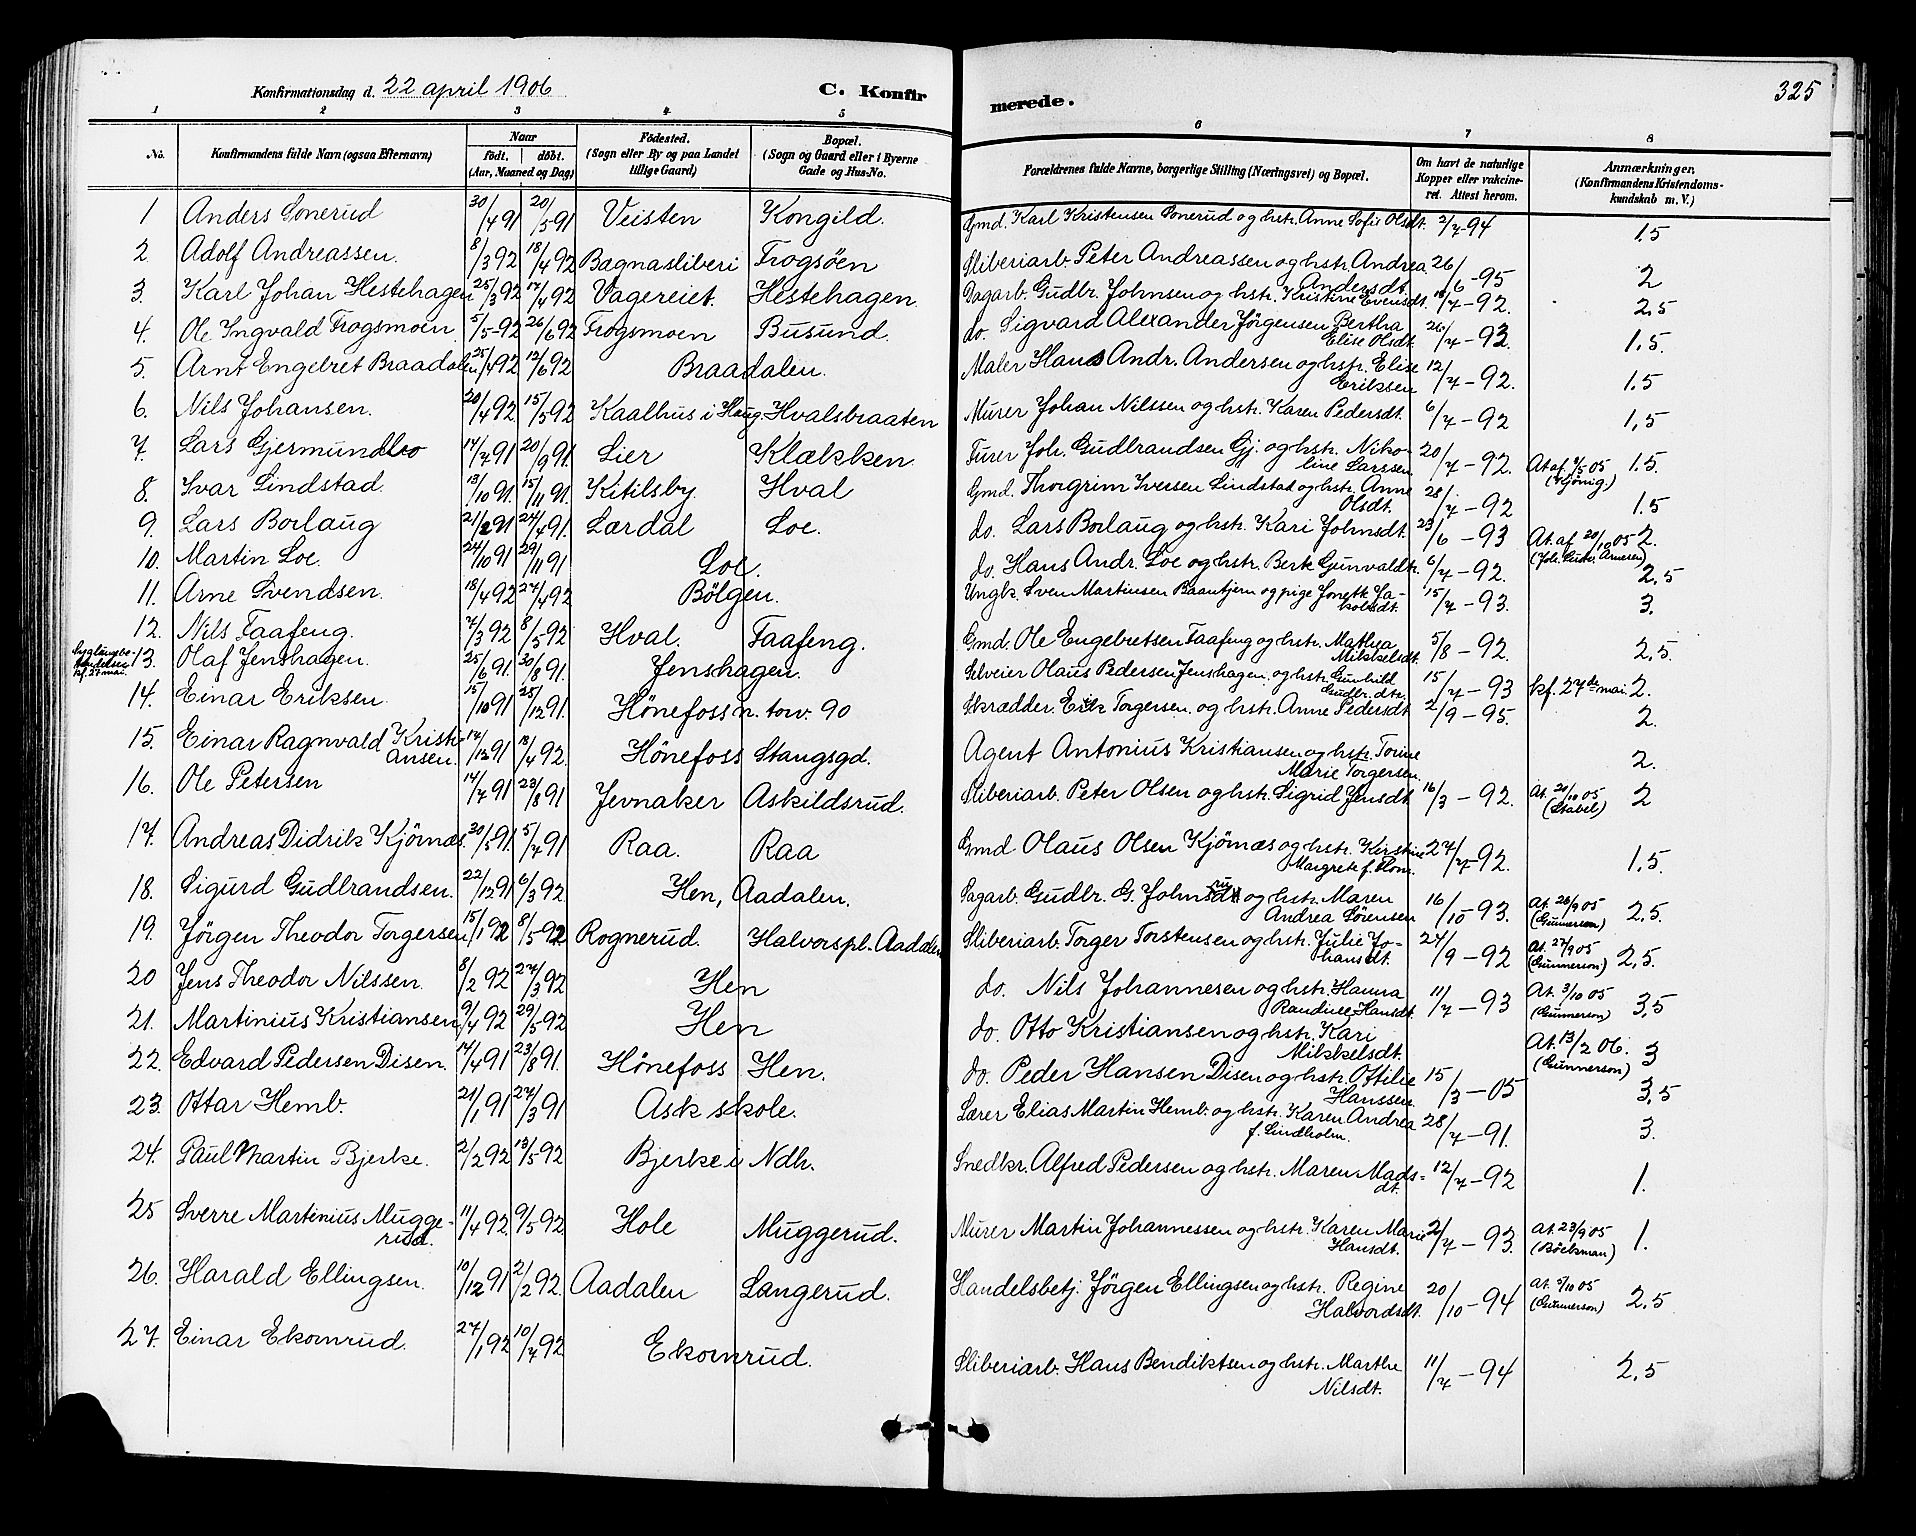 Konfirmationsdag d. 22 april 1906 C. Konfirmerede. 325
1 2 3 4 5 6 7 8
No. Konfirmandens fulde Navn (ogsaa Efternavn) Naar født. døbt. (Aar, Maaned og Dag) Fødested. (Sogn eller By og paa Landet tillige Gaard) Bopæl. (Sogn og Gaard eller i Byerne Gade og Hus-No. Forældrenes fulde Navne, borgerlige Stilling (Næringsvei) og Bopæl. Om havt de naturlige Kopper eller vakcineret. Attest herom. Anmærkninger. (Konfirmandens Kristendomskundskab m. V.)
1 Anders Sonerud 30/4 91 20/5 91 Veisten Kongild. Gmd. Karl Kristensen Sonerud og hstr. Anne Sofie Olsdt. 2/7-94 1.5
2 Adolf Andreassen. 8/3 92 18/4 92 Bagnasliberi Frogsöen Sliberiarb. Peter Andreassen og hstr. Andrea Andersdt. 26/6-95 2
3. Karl Johan Hestehagen 25/3 92 17/4 92 Vagereiet. Hestehagen Dagarb. Gudbr. Johnsen og hstr. Kristine Evensdt. 18/7-92. 2,5
4. Ole Ingvald Frogsmoen 5/5-92 26/6 92 Frogsmoen Busund. do. Sigvard Alexander Jörgensen Bertha Elise Olsdt. 26/7-93 1.5.
5. Arnt Engebret Braadalen 25/4 92 12/6 92 Braadalen. Maler Hans Andr. Andersen og hstr. Elise Eriksen 12/7-92. 1.5
6. Nils Johansen. 20/4 92 15/5 92 Kaalhus i Haug. Hvalsbraaten Murer Johan Nilssen og hstr. Karen Pedersdt. 6/7-92 1,5
7. Lars Gjermundbo 14/7 91 20/9 91. Lier Klækken Furer Joh. Gudbrandsen Gj. og hstr. Nikoline Larssen 20/7-92. At af 2/5 05 1.5.
8. Ivar Lindstad. 13/10 91. 15/11 91. Kitilsby. Hval Gmd. Thorgrim Iversen Lindstad og hstr. Anne Olsdt. 28/7-92 1.5
9. Lars Borlaug 21/2 91 24/4 91. Lærdal Loe. do. Lars Borlaug og hstr. Kari Johnsdt. 23/6-93 At. af 20/10 05 2.
10. Martin Loe. 24/10 91 29/11 91 Loe. do. Hans Andr. Loe og hstr. Berte Gunvaldtr. 6/7-92. (Joh. Arnesen) 2,5
11. Arne Svendsen. 18/4 92 24/4 92 Bölgen. Ungk. Sven Martinsen Baantjern og pige Jonette Jakobsdt. 15/7-93. 3.
12. Nils Faafeng. 7/3 92 8/5 92 Hval. Faafeng. Gmd. Ole Engebretsen Faafeng og hstr. Mathea Mikkelsdt. 5/8-92. 2,5.
13. Olaf Jenshagen. 25/6 91. 30/8 91. Jenshagen. Selveier Olaus Pedersen Jenshagen. og hstr. Gunhild Gudbr. dtr. 15/7-93 kf. 27de mai. 2.
14. Einar Eriksen. 15/10 91 25/12 91. Hönefoss n. torv. 90 Skrædder. Erik Torgersen. og hstr. Anne Pedersdt 2/9-95. 2.
15. Einar Ragnvald Kristiansen. 14/12 91 18/4 92. Hönefoss Stangsgd. Agent Antonius Kristiansen og hstr. Torine Marie Torgersen. 2.
16. Ole Petersen 14/7 91 23/8 91 Jevnaker Askildsrud. Sliberiarb. Peter Olsen og hstr. Sigrid Jensdt. 16/3-92. At. 20/10 05 (Stabel) 2
17. Andreas Didrik Kjörnæs. 30/5 91. 5/7 91 Raa. Raa Gmd Olaus Olsen Kjörnæs og hstr. Kerstine Margrete f. Thon. 27/7-92. 1.5.
18. Sigurd Gudbrandsen. 22/12 91 6/3 92. Hen, Aadalen. Sagarb. Gudbr. G. Johnsrud og hstr. Maren Andrea Sörensen 16/10-93. At. 28/9 05 (Gunnerson) 2,5.
19. Jörgen Theodor Torgersen 15/1 92 8/5 92 Rognerud. Halvorspl. Aadalen Sliberiarb. Torger Torstensen og hstr. Julie Johansdt. 24/9-92 At. 27/9 05 (Gunnerson) 2,5.
20 Jens Theodor Nilssen. 8/2 92 27/3 92 Hen do. Nils Johannesen og hstr. Hanna Randine Hansdt. 11/7-93 At. 3/10 05 (Gunnerson) 3,5
21. Martinius Kristiansen 9/4 92 29/5 92 Hen do. Otto Kristiansen og hstr. Kari Mikkelsdt. At. 13/2 06. (Gunnerson) 3
22. Edvard Pedersen Disen. 14/4 91 23/8 91. Hönefoss Hen. do. Peder Hansen Disen og hstr. Ottilie Hanssen. 15/3-05 3,5
23. Ottar Hemb. 21/1 91 27/3 91 Ask skole. Lærer Elias Martin Hemb. og hstr. Karen Andrea f. Lindholm. 28/7-91. 3.
24. Paul Martin Bjerke. 2/2 92 13/5 92 Bjerke i Ndh. Snedkr. Alfred Pedersen og hstr. Maren Madsdt. 12/7-92 1.
25 Sverre Martinius Muggerud. 11/4 92. 9/5 92. Hole Muggerud. Murer Martin Johannessen og hstr. Karen Marie Hansdt. 2/7-93. At. 23/9 05 (Böckman) 1.
26. Harald Ellingsen. 10/12 91 2/2 92. Aadalen Langerud. Handelsbetj. Jörgen Ellingsen og hstr. Regine Halvordsdt. 20/10-94 At. 5/10 05 (Gunnerson) 2,5
27. Einar Ekornrud. 27/1 92 10/7 92 Ekornrud. Sliberiarb. Hans Bendiktsen og hstr. Marthe Nilsdt. 11/7-94 2,5